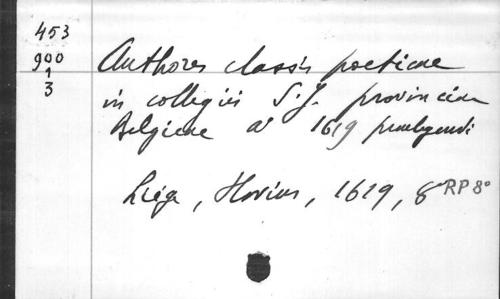 453
900
1
3
Authores classis poeticae
in collegiis S.J. provinciae
Belgicae a° 1619 praelegendi
Liége, Hovius, 1619, 8° RP 8°